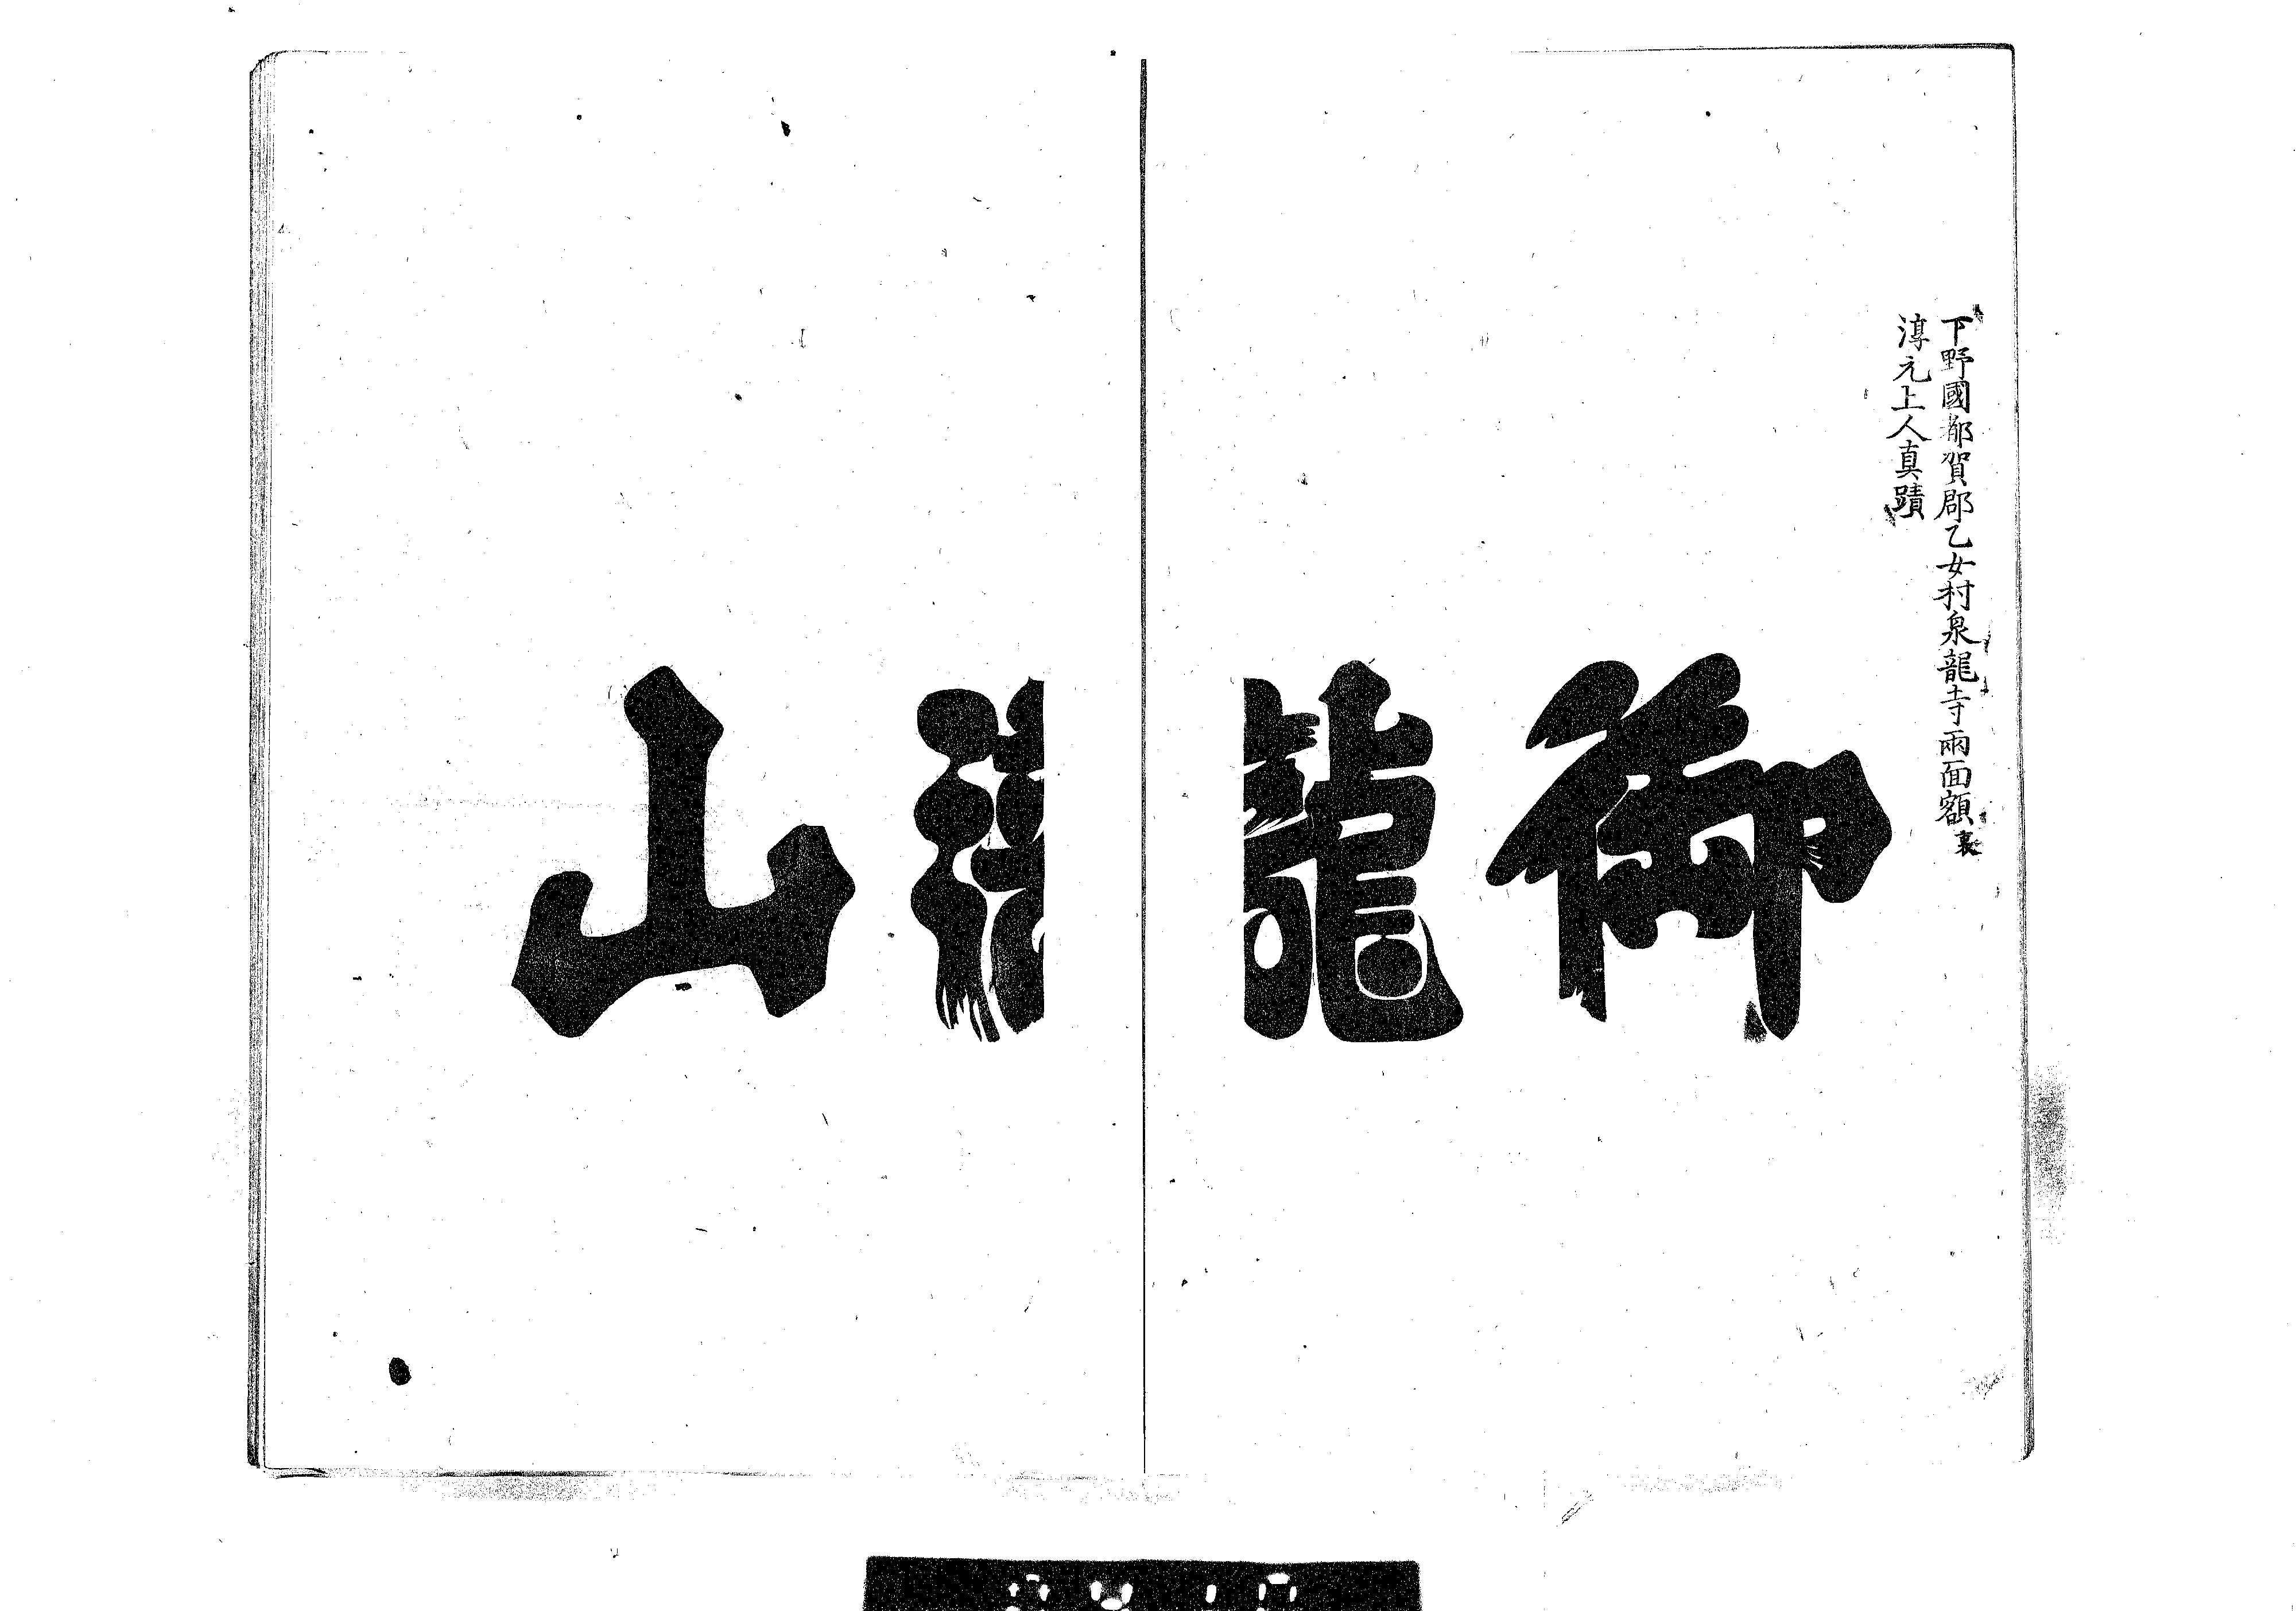 下野國都賀郡乙女村泉龍寺兩面額裏
淳元上人真蹟
御瀧山